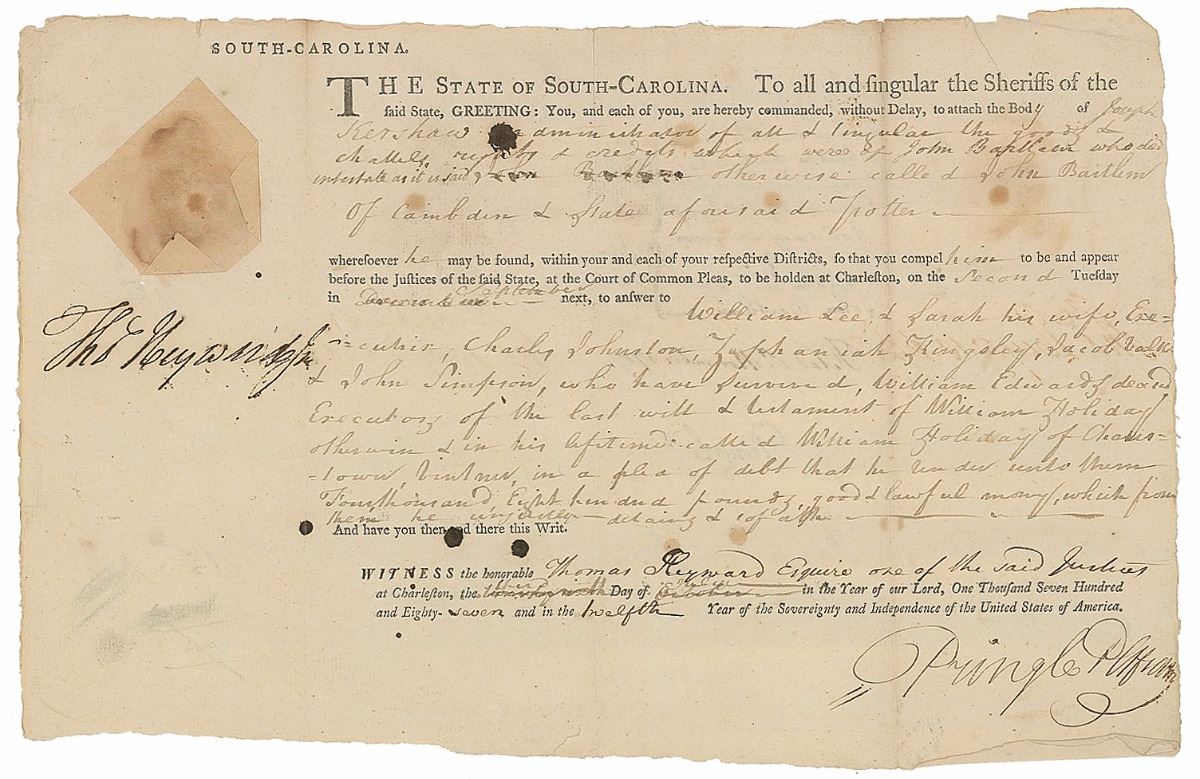 SOUTH-CAROLINA.
THE STATE OF SOUTH-CAROLINA. To all and singular the Sheriffs of the
said State, GREETING: You, and each of you, are hereby commanded, without Delay, to attach the Body of Joseph
Kershaw administrator of all & singular the goods &
chattels, rights & credits which were of John Bartlam who died
intestate as it is said, otherwise called John Bartlem
Of Cambden & State aforesaid Potter
wheresoever he may be found, within your and each of your respective Districts, so that you compel him to be and appear
before the Justices of the said State, at the Court of Common Pleas, to be holden at Charleston, on the Second Tuesday
in September next, to answer to
William Lee, & Sarah his wife, Exe-
-cutrix, Charles Johnston, Zephaniah Kingsley, Jacob Valk
& John Simpson, who have survived, William Edwards deced
Executors of the last will & testament of William Holiday
otherwise & in his lifetime called William Holiday of Charles-
-town, Vintner, in a plea of debt that he render unto them
Four thousand Eight hundred pounds, good & lawful money, which from
them he unjustly detains & so faith
And have you then and there this Writ.
Thos Heyward Jr
WITNESS the honorable Thomas Heyward Esquire one of the said Justices
at Charleston, the Day of in the Year of our Lord, One Thousand Seven Hundred
and Eighty-seven and in the twelfth Year of the Sovereignty and Independence of the United States of America.
Pringle